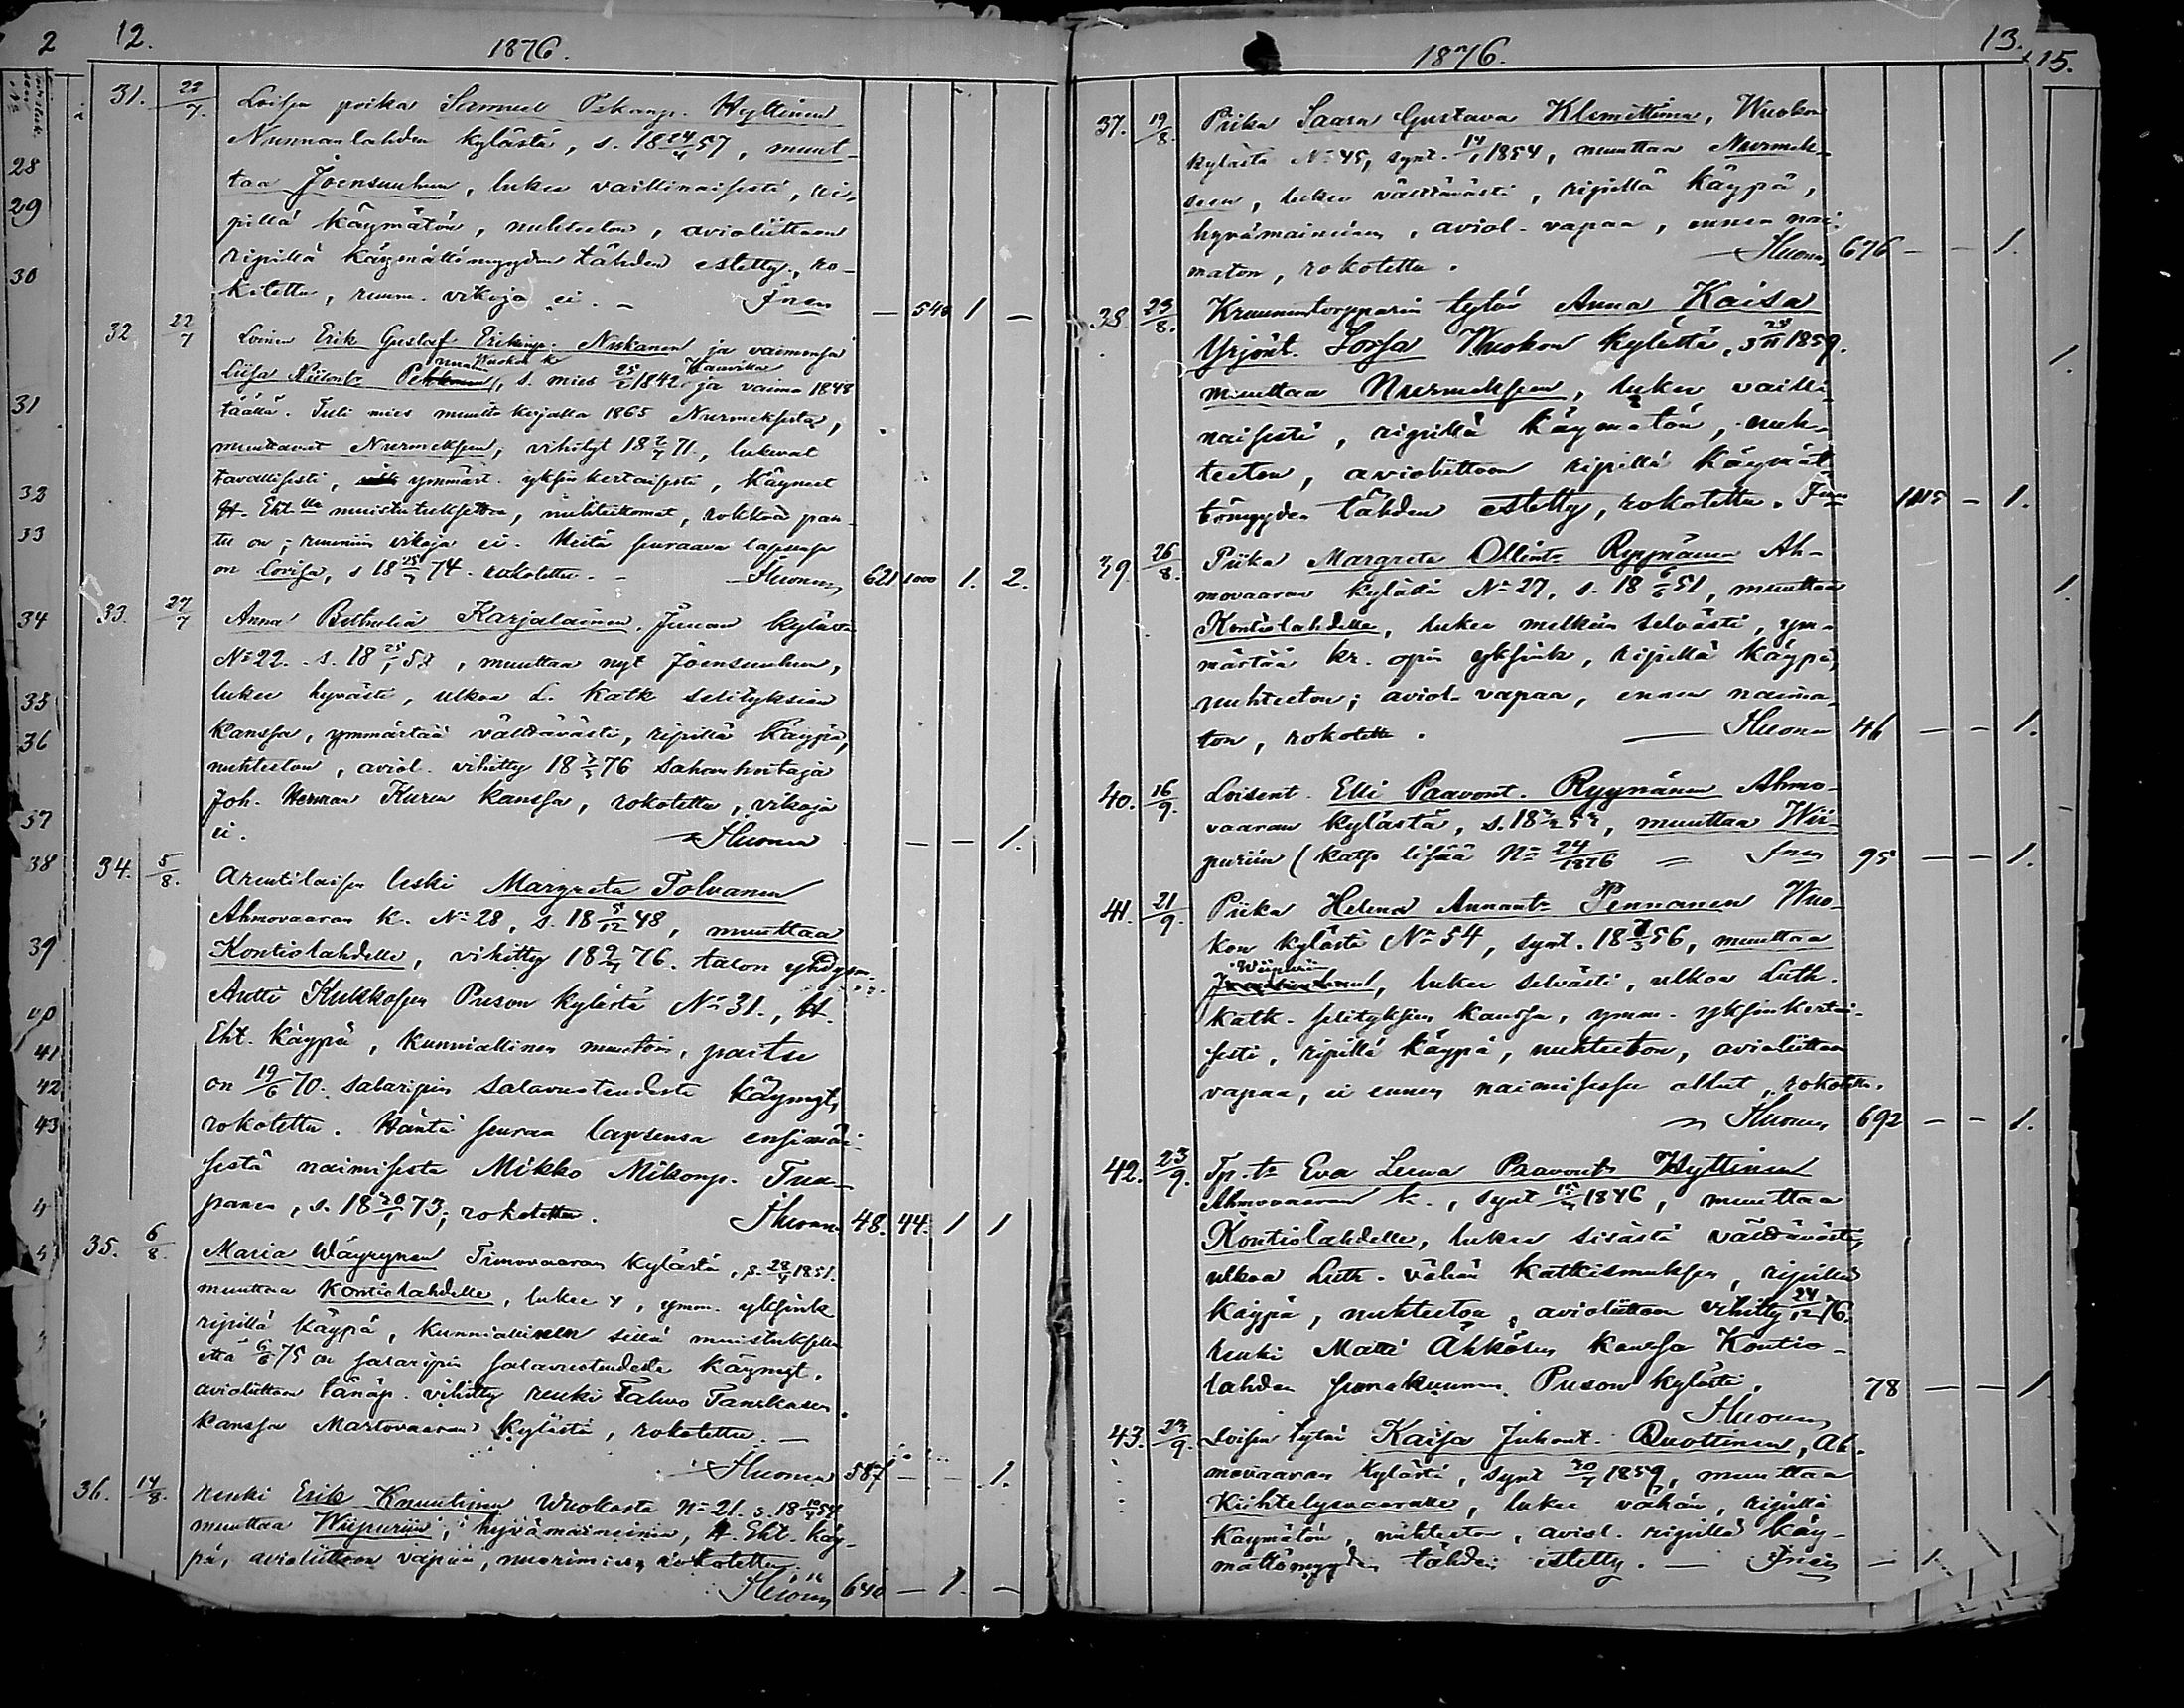 2
12.
1876.
28
29
30
31
32
33
34
35
36
37
38
39
40
41
42
43
31. 22/7. Loisen poika Samuel Pekanp. Hyttinen
Nunnanlahden kylästä, s. 18 24/4 57, muut-
taa Joensuuhun, lukee vaillinaisesti, ri-
pillä käymätön, nuhteeton, avioliittoon
ripillä käymättömyyden tähden estetty, ro-
kotettu, ruum. vikoja ei. – – 540 1 –
32 22/7 Loinen Erik Gustaf Erikinp. Niskanen ja vaimonsa
Liisa Niilont. s. mies 25/2 1842 ja vaimo 1848
täällä. Tuli mies muutto kirjalla 1865 Nurmeksesta,
muuttavat Nurmekseen, vihityt 18 2/7 71, lukevat
tavallisesti, ymmärt. yksinkertaisesti, käyneet
H. Eht:lla muistutuksetta, nuhteettomat, rokkoa pan-
tu on; ruumiin vikoja ei. Heitä seuraava lapsensa
on Lovisa, s 18 25/7 74. rokotettu. – 621 1000 1. 2.
33. 27/7 Anna Karjalainen, Juuan kylästä
No 22. s. 18 25/1 52, muuttaa nyt Joensuuhun,
lukee hyvästi, ulkoa L. Katk selityksien
kanssa, ymmärtää välttävästi, ripillä käypä,
nuhteeton, aviol. vihitty 18 2/7 76 sahanhoitaja
Joh. Herman Kuren kanssa, rokotettu, vikoja
ei. – – 1.
34. 5/8. Arentilaisen leski Margreta Tolvanen
Ahmovaaran k. No 28, s. 18 5/12 48, muuttaa
Kontiolahdelle, vihitty 18 9/7 76. talon
Antti Kukkosen Puson kylästä No 31., H.
Eht. käypä, kunniallinen muutoin, paitse
on 19/6 70. salaripin salavuoteudesta käynyt,
rokotettu. Häntä seuraa lapsensa ensimäi-
sestä naimisesta Mikko Mikonp. Tuu-
panen, s. 18 20/1 73; rokotettu. 48. 44. 1 1
35. 6/8. Maria Wäyrynen Timovaaran kylästä, s. 28/4 1851.
muuttaa Kontiolahdelle, lukee +, ymm. yksink
ripillä käypä, kunniallinen sillä muistuksella
että 6/6 75 on salaripin salavuoteudesta käynyt,
avioliittoon tänäp. vihitty renki Tahvo Tanskasen
kanssa Martovaaran kylästä, rokotettu. –
587 – – 1.
36. 14/8. renki Erik Knuutinen Wuokosta No 21. s. 18 54
muuttaa Wiipuriin, hyvämaineinen, H. Eht. käy-
pä, avioliittoon vapaa, nuorimies, rokotettu.
640 – 1. –
1876.
13.
15.
37. 19/8. Piika Saara Gustava Klemettinen, Wuokon
kylästä No 45, synt. 14/1 1854, muuttaa Nurmek-
seen, lukee välttävästi, ripillä käypä,
hyvämaineinen, aviol. vapaa, ennen nai-
maton, rokotettu. 676 – – 1.
38. 23/8. Kruununtorpparin tytär Anna Kaisa
Yrjönt. Wuokon kylästä, s 1859.
muuttaa Nurmekseen, lukee vailli-
naisesti, ripillä käymätön, nuh-
teeton, avioliittoon ripillä käymät-
tömyyden tähden estetty, rokotettu. 1115 – 1.
39. 26/8. Piika Margreta Ollint: Ryynänen Ah-
movaaran kylästä No 27, s. 18 6/6 51, muuttaa
Kontiolahdelle, lukee melkein selvästi, ym-
märtää kr. opin yksink, ripillä käypä,
nuhteeton; aviol. vapaa, ennen naima-
ton, rokotettu. 46 – – 1.
40. 16/9. Loisent. Elli Paavont. Ryynänen Ahmo-
vaaran kylästä, s. 18 muuttaa Wii-
puriin (katso lisää No 24/1876 95 – – 1.
41. 21/9. Piika Helena Annant: Pennanen Wuo-
kon kylästä No 54, synt. 18 7/5 56, muuttaa
Wiipuriin
lukee selvästi, ulkoa Luth.
katk. selityksien kanssa, ymm. yksinkertai-
sesti, ripillä käypä, nuhteeton, avioliittoon
vapaa, ei ennen naimisessa ollut, rokotettu.
692 – – 1.
42. 23/9. Tp. t: Eva Leena Paavont: Hyttinen
Ahmovaaran k., synt 1846, muuttaa
Kontiolahdelle, lukee sisästä välttävästi,
ulkoa Luth. vähän katkismuksen, ripillä
käypä, nuhteeton, avioliittoon vihitty 24/12 76.
renki Matti kanssa Kontio-
lahden seurakunnan Puson kylästä. 78 – – 1
43. 23/9. Loisen tytär Kaisa Juhont. Ruottinen, Ah-
movaaran kylästä, synt 30/7 1859, muuttaa
Kiihtelysvaaralle, lukee vähän, ripillä
käymätön, nuhteeton, aviol. ripillä käy-
mättömyyden tähden estetty. – – 1.
1.
1.